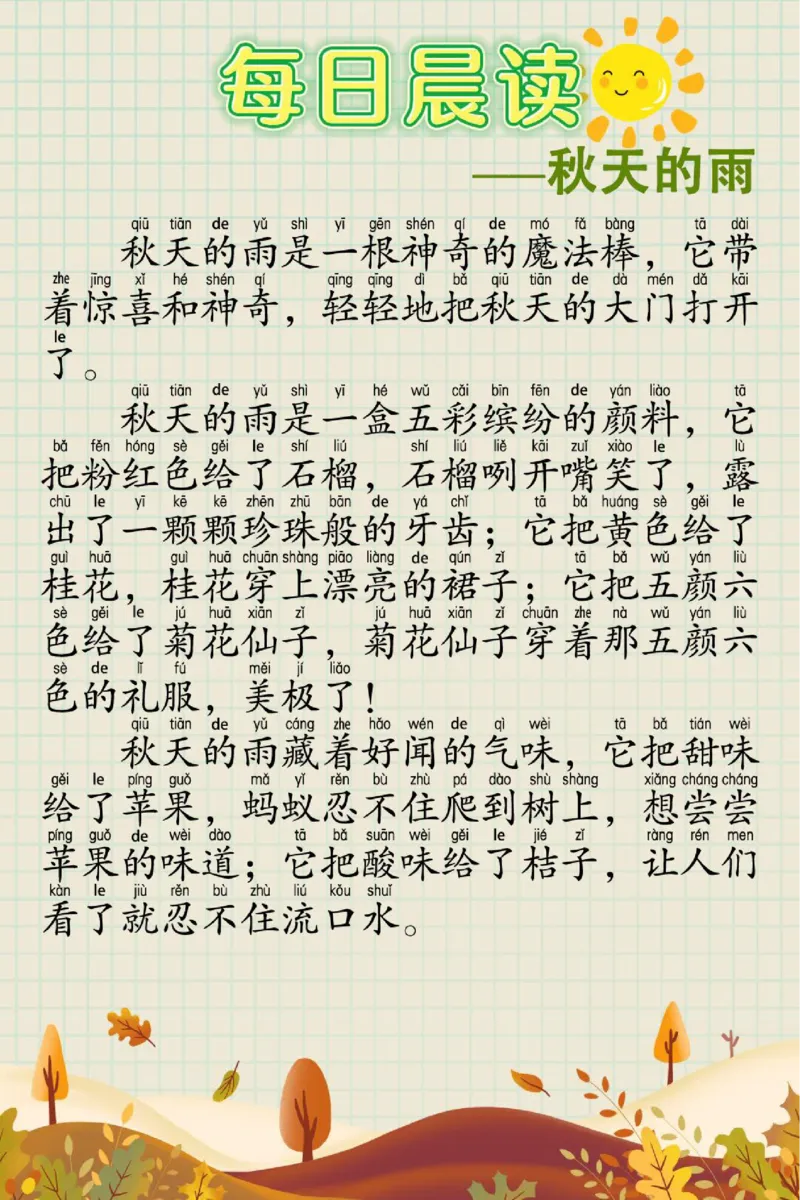 每日晨读
——秋天的雨
qiū tiān de yǔ shì yī gēn shén qí de mó fǎ bàng tā dài
秋天的雨是一根神奇的魔法棒，它带
zhe jīng xǐ hé shén qí qīng qīng dì bǎ qiū tiān de dà mén dǎ kāi
着惊喜和神奇，轻轻地把秋天的大门打开
le
了。
qiū tiān de yǔ shì yī hé wǔ cǎi bīn fēn de yán liào tā
秋天的雨是一盒五彩缤纷的颜料，它
bǎ fěn hóng sè gěi le shí liú shí liú liě kāi zuǐ xiào le lù
把粉红色给了石榴，石榴咧开嘴笑了，露
chū le yī kē kē zhēn zhū bān de yá chǐ tā bǎ huáng sè gěi le
出了一颗颗珍珠般的牙齿；它把黄色给了
guì huā guì huā chuān shàng piāo liàng de qún zǐ tā bǎ wǔ yán liù
桂花，桂花穿上漂亮的裙子；它把五颜六
sè gěi le jú huā xiān zǐ jú huā xiān zǐ chuān zhe nà wǔ yán liù
色给了菊花仙子，菊花仙子穿着那五颜六
sè de lǐ fú měi jí liǎo
色的礼服，美极了！
qiū tiān de yǔ cáng zhe hǎo wén de qì wèi tā bǎ tián wèi
秋天的雨藏着好闻的气味，它把甜味
gěi le píng guǒ mǎ yǐ rěn bù zhù pá dào shù shàng xiǎng cháng cháng
给了苹果，蚂蚁忍不住爬到树上，想尝尝
píng guǒ de wèi dào tā bǎ suān wèi gěi le jié zǐ ràng rén men
苹果的味道；它把酸味给了桔子，让人们
kàn le jiù rěn bù zhù liú kǒu shuǐ
看了就忍不住流口水。